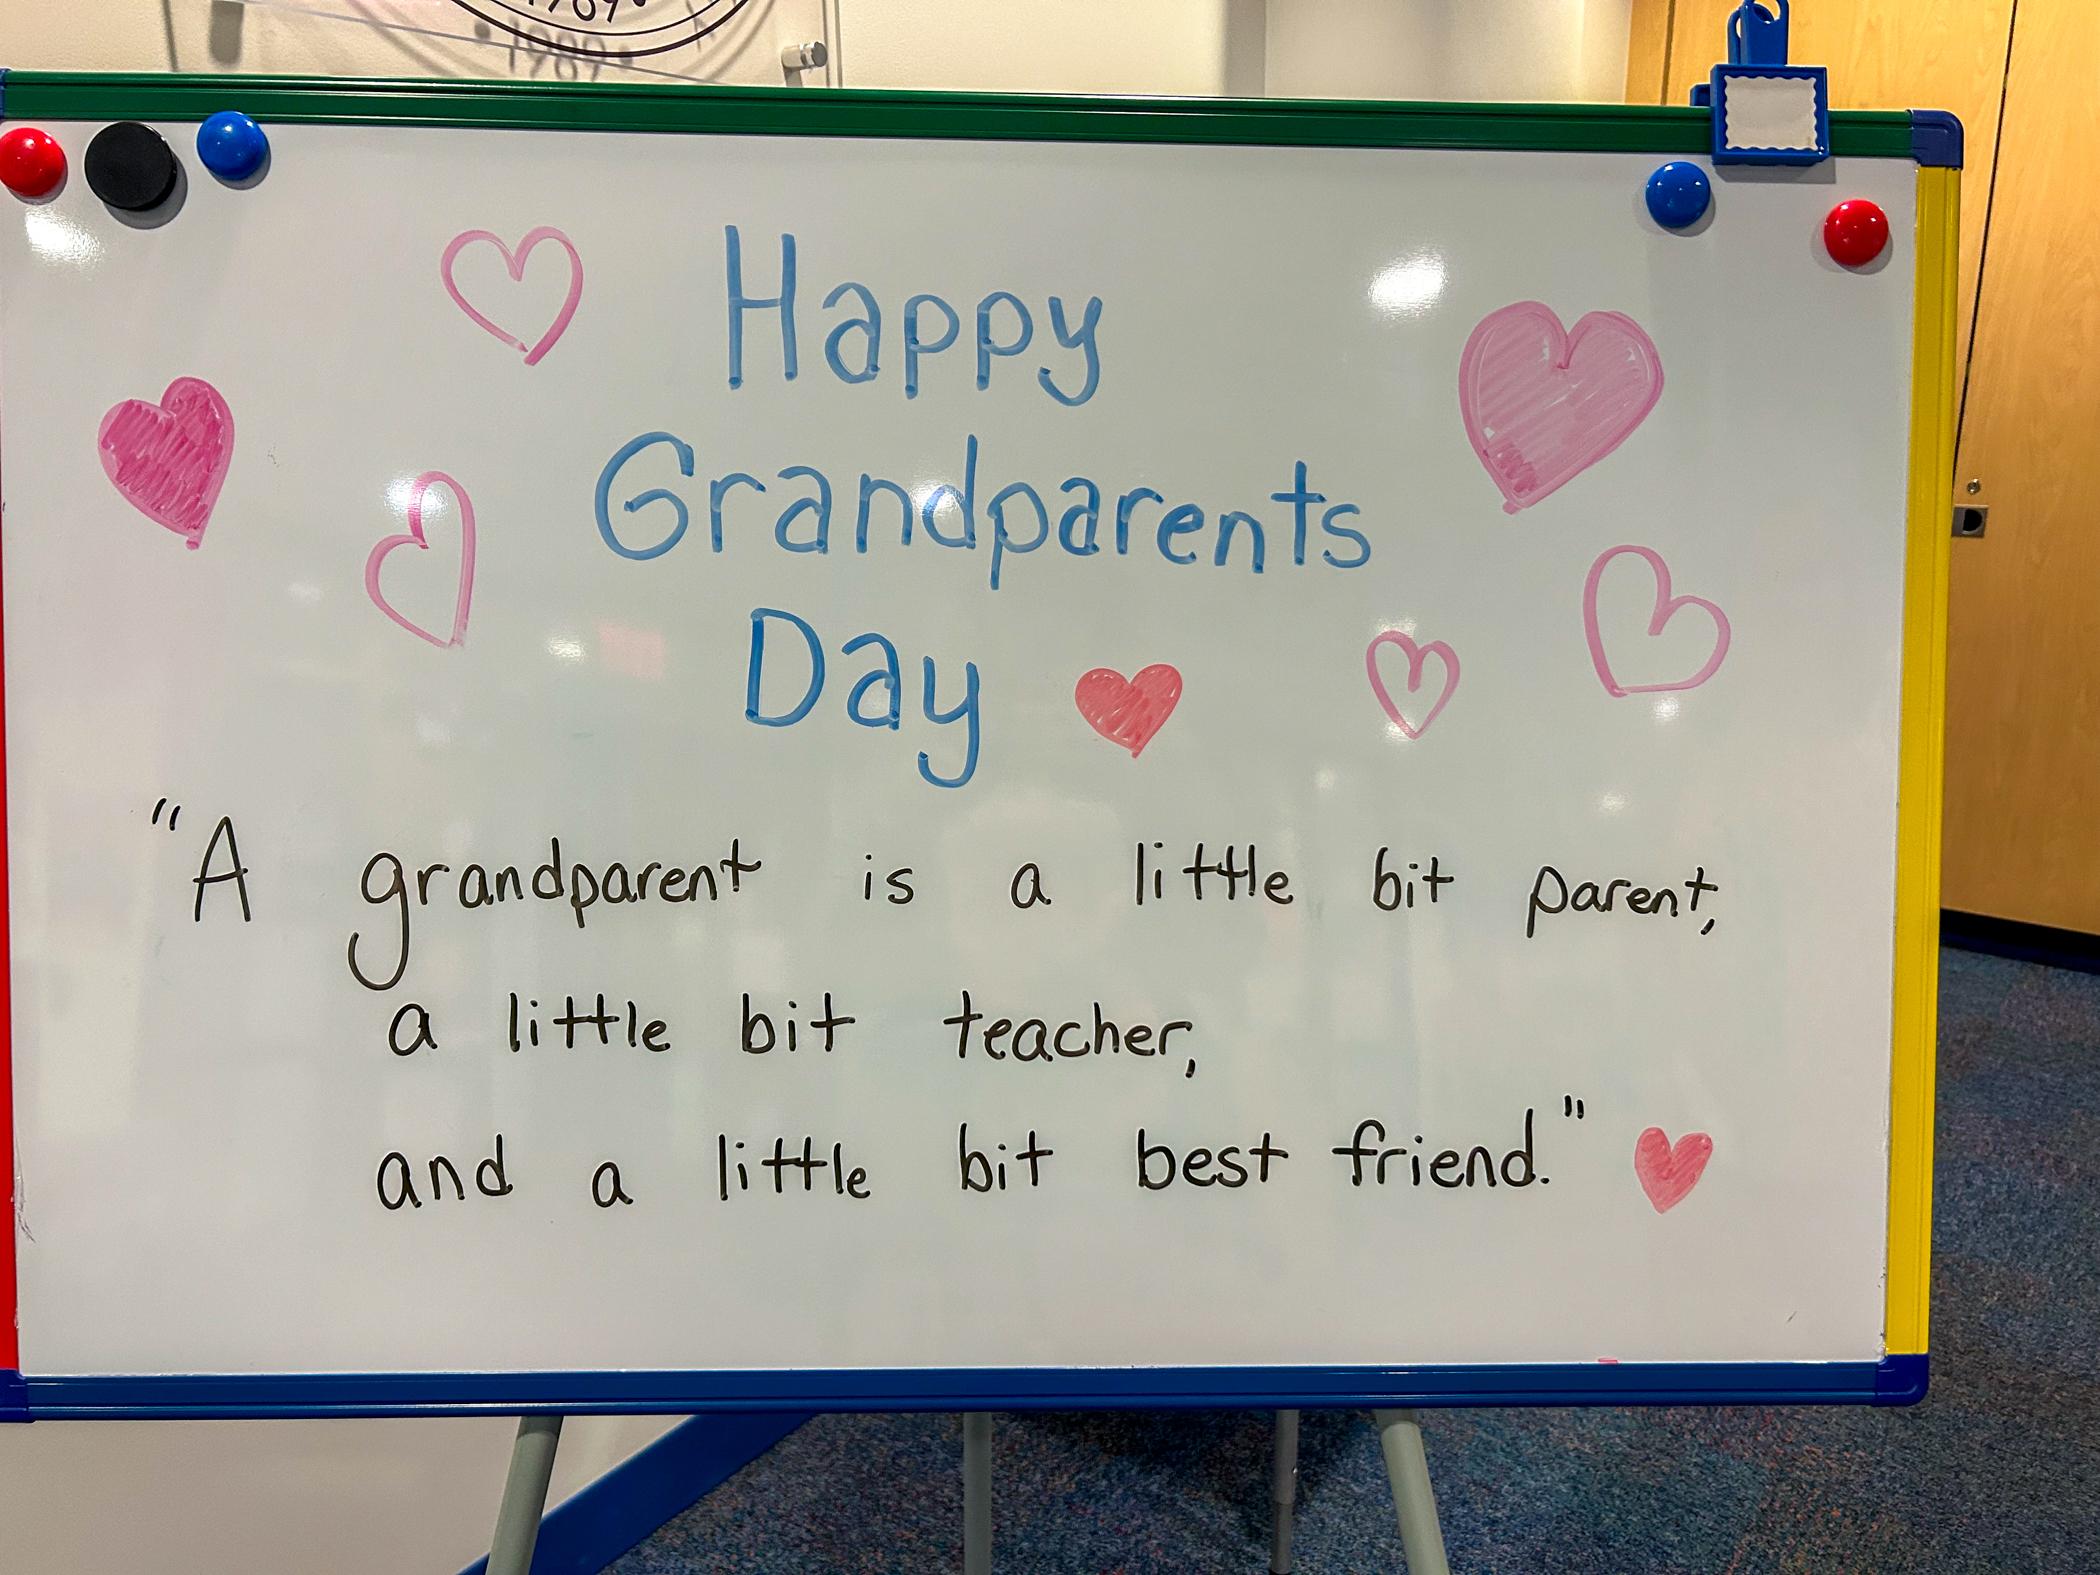 1989
Happy
Grandparents
Day
"A grandparent is a little bit parent,
a little bit teacher,
and a little bit best friend."